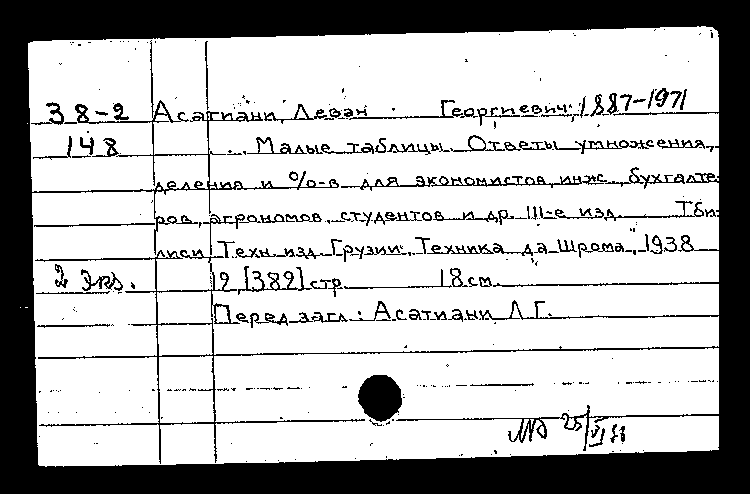 38-2 Асатиани, Леван Георгиевич, 1887-1971
148 ... Малые таблицы. Ответы умножения,
деления и %-в для экономистов, инж., бухгалте-
ров, агрономов, студентов и др. III-е изд. Тби-
лиси, Техн. изд. Грузии "Техника да Шрома", 1938
2 экз. 12, [382] стр. 18 см.
Перед загл.: Асатиани Л.Г.
25/VI